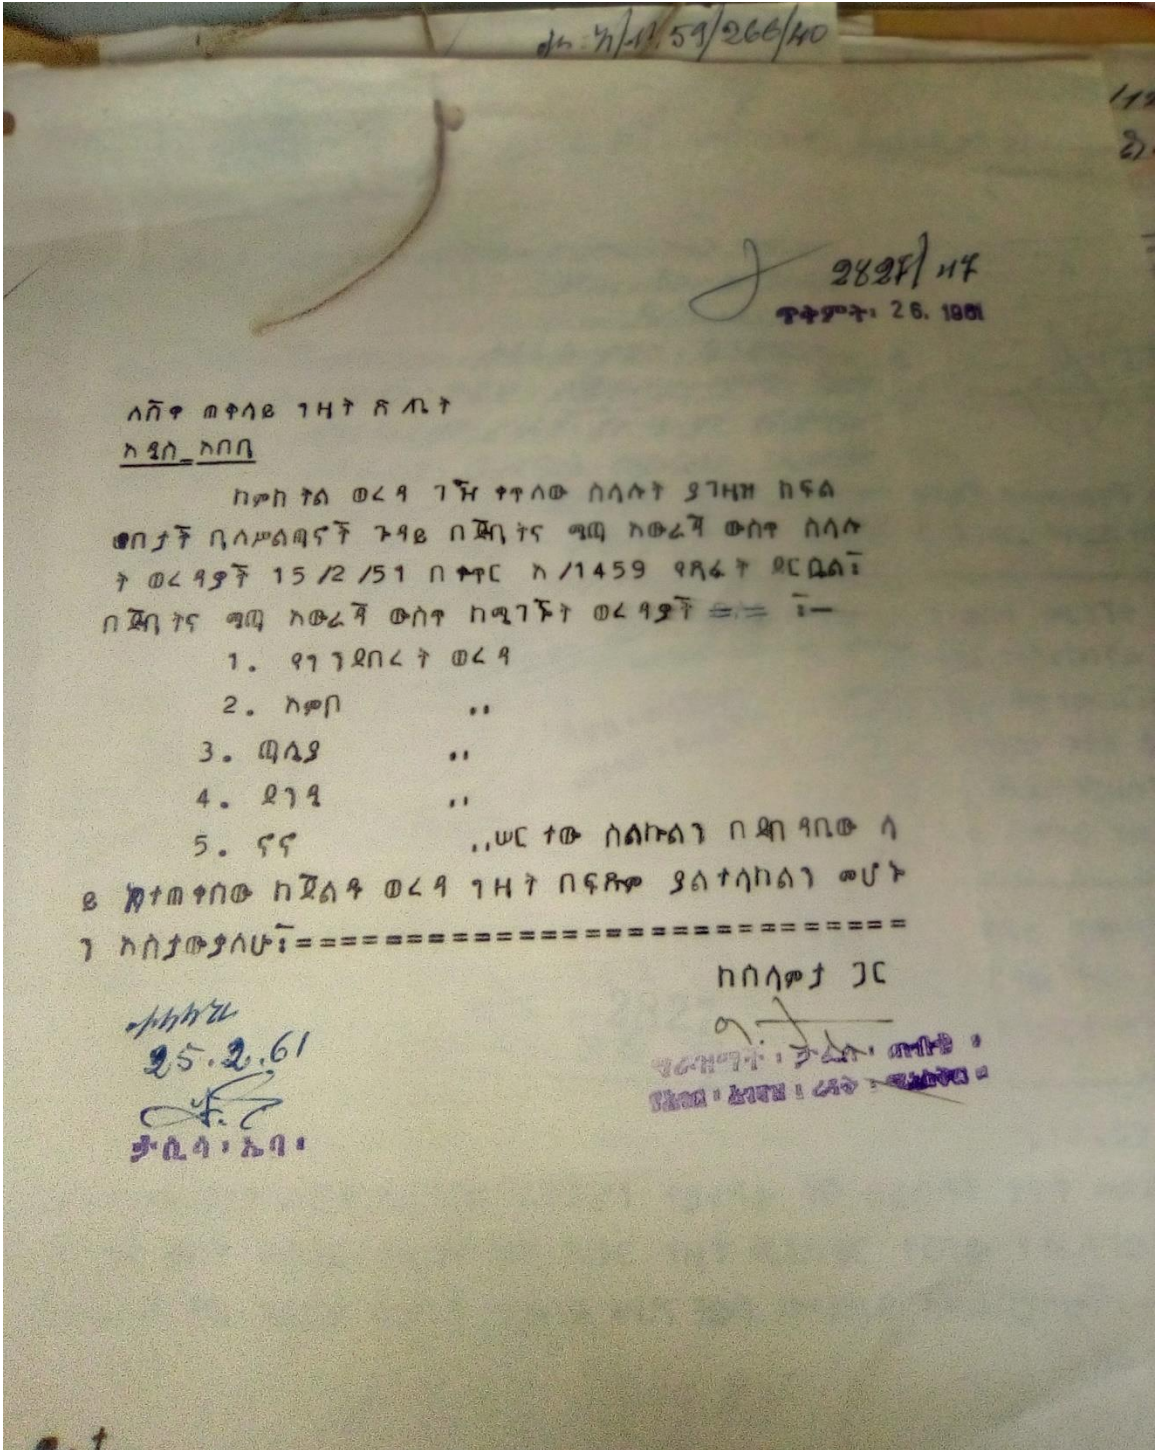 59/266/40
2827/47
ጥቅምት፡ 26. 1961
ለሸዋ ጠቅላይ ግዛት ጽ ቤት
አዲስ_አበባ
ከምክትል ወረዳ ገዥ ቀጥለው ስላሉት ያገዛዝ ክፍል
ወበታች ቢለሥልጣኖች ጉዳይ በጅባትና ሜጫ አውራጃ ውስጥ ስላሉ
ት ወረዳዎች 15/2/51 በቀጥር አ/1459 የጻፈት ደርቧል፤
በጅባትና ሜጫ አውራጃ ውስጥ ከሚገኙት ወረዳዎች == ፤—
1. የገንደበረት ወረዳ
2. አምቦ ,,
3. ጫሊያ ,,
4. ደንዲ ,,
5. ኖኖ ,,ሠርተው ስልኩልን በደብዳቤው ላ
ይ የተጠቀሰው ከጀልዱ ወረዳ ግዛት በፍጹም ያልተላከልን መሆኑ
ን አስታውቃለሁ፤============================
ከሰላምታ ጋር
25.2.61
ታሲሳ፡ ኤባ፡